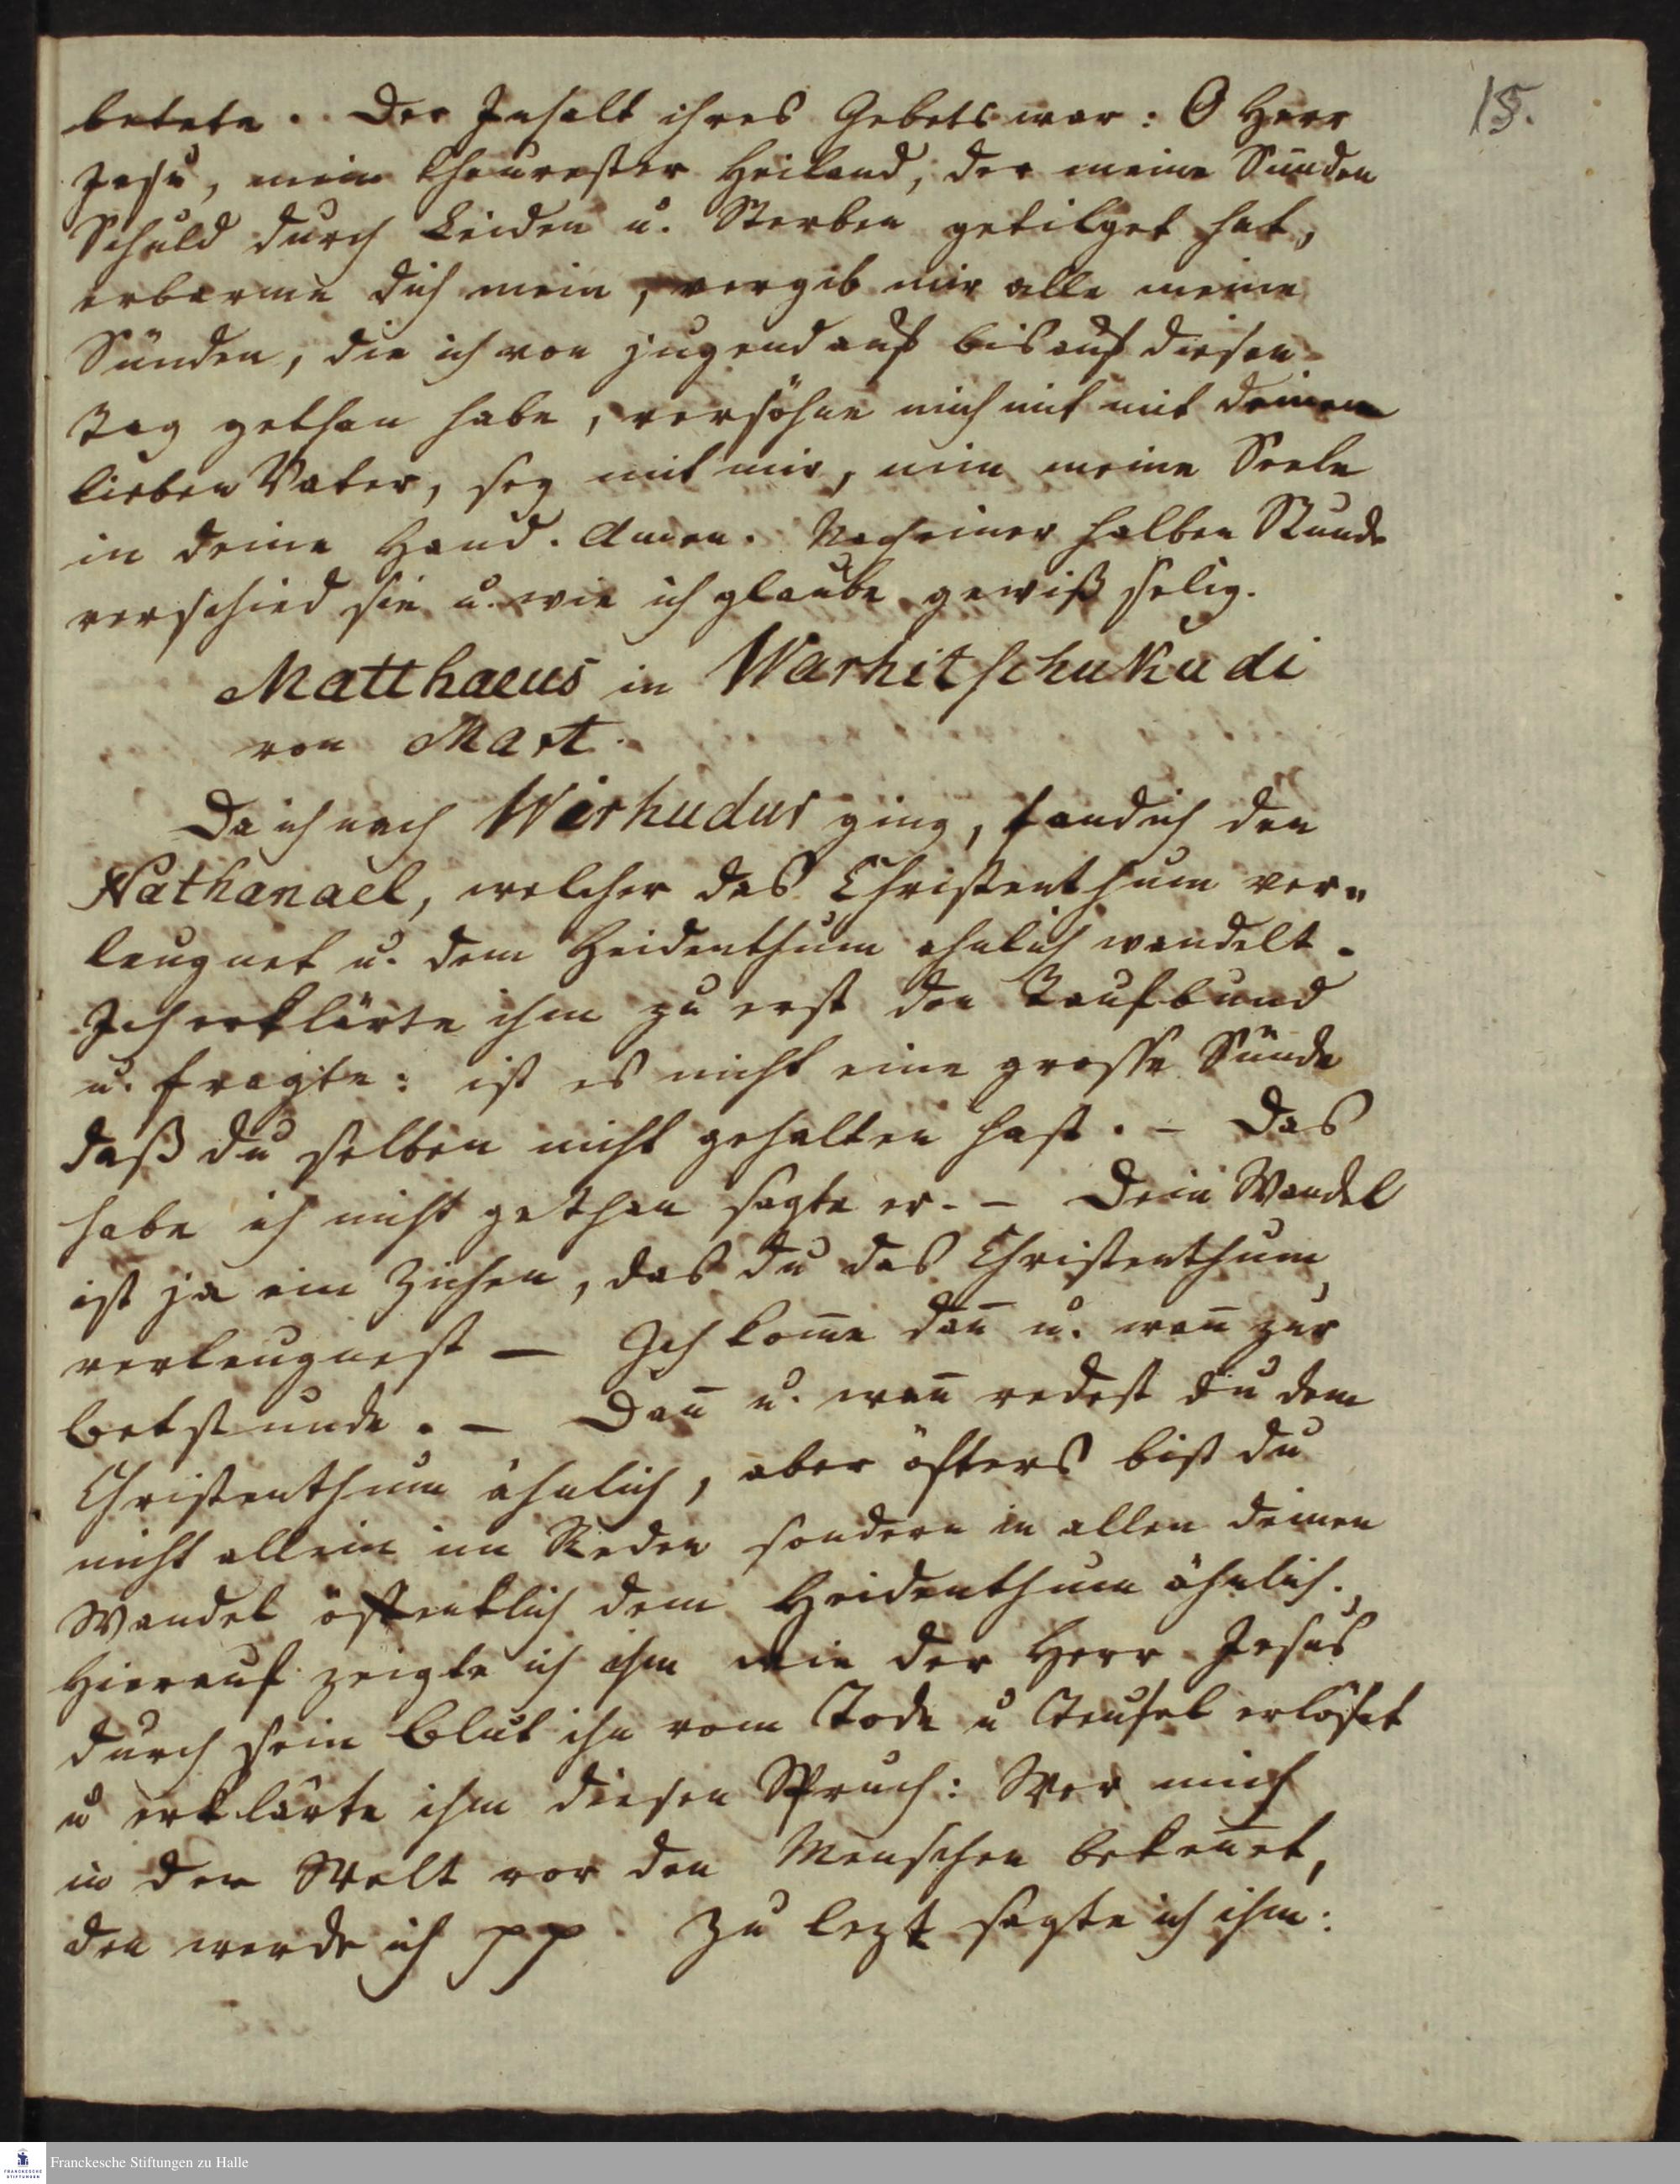 15.
betete. Der Inhalt ihres Gebets war: O Herr
Jesu, mein theurester Heiland, der meine Sünden
Schuld durch Leiden u. Sterben getilget hat,
erbarme dich mein, vergib mir alle meine
Sünden, die ich von jugend auf bis auf diesen
Tag gethan habe, versöhne mich mit mit deinem
lieben Vater, sey mit mir, nim meine Seele
in deine Hand. Amen. Nach einer halben Stunde
verschied sie u. wie ich glaube gewiß selig.
Matthaeus in Warhitschukudi
von Mart.
Da ich nach Wirhudur ging, fand ich den
Nathanael, welcher das Christenthum ver„
leugnet u. dem Heidenthum ahnlich wandelt.
Ich erklärte ihm zu erst den Taufbund
u. fragte: ist es nicht eine grosse Sünde
daß du selben nicht gehalten hast. – Das
habe ich nicht gethan sagte er. – Dein Wandel
ist ja ein Zichen, das du das Christenthum
verleugnest – Ich kom̄e dan̄ u. wan̄ zur
betstunde. – Dan̄ u. wan̄ redest du dem
Christenthum ähnlich, aber öfters bist du
nicht allein im Reden sondern in allen deinen
Wandel öffentlich dem Heidenthum ähnlich.
Hierauf zeigte ich ihm wie der Herr Jesus
durch sein Blut ihn vom Tode u Teufel erlöset
u erklärte ihm diesen Spruch: Wer mich
in der Welt vor den Menschen beken̄et,
den werde ich pp. Zu lezt sagte ich ihm:
FRANCKESCHE STIFTUNGEN
Franckesche Stiftungen zu Halle